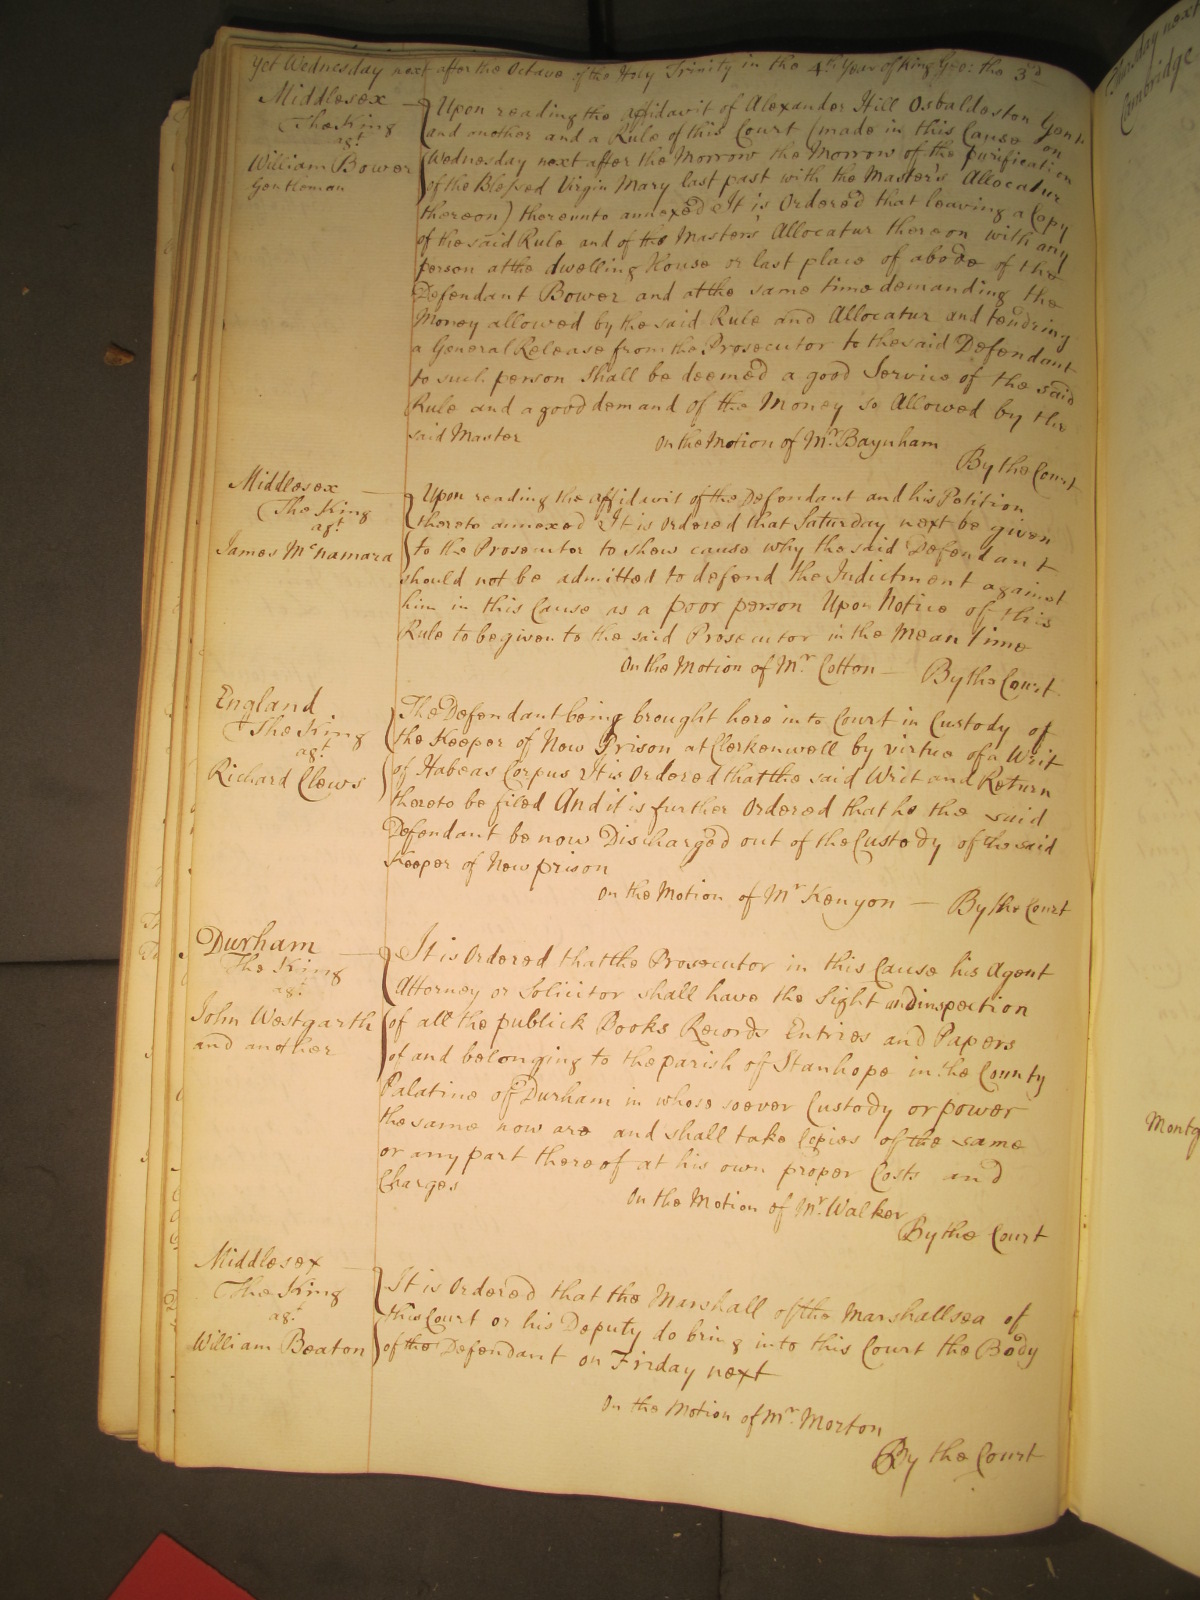 Yet Wednesday next after the Octave of the Holy Trinity in the 4th Year of King Geo: the 3rd
Middlesex
The King
agt
William Bower
Gentleman
Upon reading the affidavit of Alexander Hill Osbaldeston Gent
and another and a Rule of this Court (made in this Cause on
Wednesday next after the Morrow the Morrow of the purification
of the Blessed Virgin Mary last past with the Master's Allocatur
thereon) thereunto annexed It is Ordered that leaving a Copy
of the said Rule and of the Masters Allocatur thereon with any
person at the dwelling House or last place of abode of the
Defendant Bower and at the same time demanding the
Money allowed by the said Rule and Allocatur and tendring
a General Release from the Prosecutor to the said Defendant
to such person Shall be deemed a good Service of the said
Rule and a good demand of the Money so Allowed by the
said Master
On the Motion of Mr. Baynham
By the Court
Middlesex
The King
agt
James McNamara
Upon reading the affidavit of the Defendant and his Petition
thereto annexed It is Ordered that Saturday next be given
to the Prosecutor to shew cause why the said Defendant
should not be admitted to defend the Indictment against
him in this Cause as a poor person Upon Notice of this
Rule to be given to the said Prosecutor in the Mean time
On the Motion of Mr. Cotton — By the Court
England
The King
agt
Richard Clews
The Defendant being brought here into Court in Custody of
the Keeper of New Prison at Clerkenwell by virtue of a Writ
of Habeas Corpus It is Ordered that the said Writ and Return
thereto be filed And it is further Ordered that he the said
Defendant be now Discharged out of the Custody of the said
Keeper of New prison
On the Motion of Mr Kenyon — By the Court
Durham
The King
agt
John Westgarth
and another
It is Ordered that the Prosecutor in this Cause his Agent
Attorney or Solicitor shall have the Sight and inspection
of all the publick Books Records Entries and Papers
of and belonging to the parish of Stanhope in the County
Palatine of Durham in whose soever Custody or power
the same now are and shall take Copies of the same
or any part thereof at his own proper Costs and
Charges
On the Motion of Mr. Walker
By the Court
Middlesex
The King
agt
William Beaton
It is Ordered that the Marshall of the Marshallsea of
this Court or his Deputy do bring into this Court the Body
of the Defendant on Friday next
On the Motion of Mr. Morton
By the Court
Thursday next
Cambridge
Montg